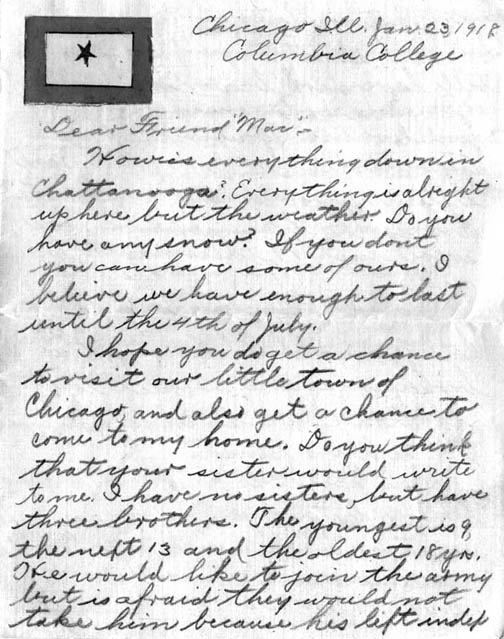 Chicago Ill. Jan. 23, 1918
Columbia College
Dear Friend "Mac":-
How is everything down in
Chattanooga? Everything is alright
up here but the weather. Do you
have any snow? If you dont
you can have some of ours. I
beleive we have enough to last
until the 4th of July.
I hope you do get a chance
to visit our little town of
Chicago, and also get a chance to
come to my home. Do you think
that your sister would write
to me. I have no sisters, but have
three brothers. The youngest is 9
the next 13 and the oldest 18 yrs.
He would like to join the army
but is afraid they would not
take him because his left index